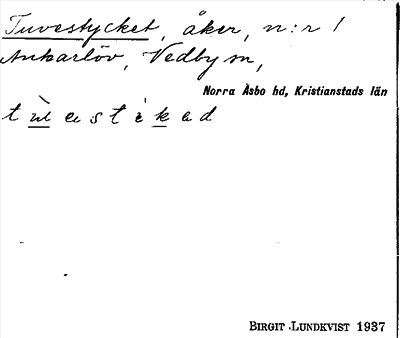 Tuvestycket, åker, n:r 1
Ankarlöv, Vedby sn,
Norra Åsbo hd, Kristianstads län
BIRGIT LUNDKVIST 1937